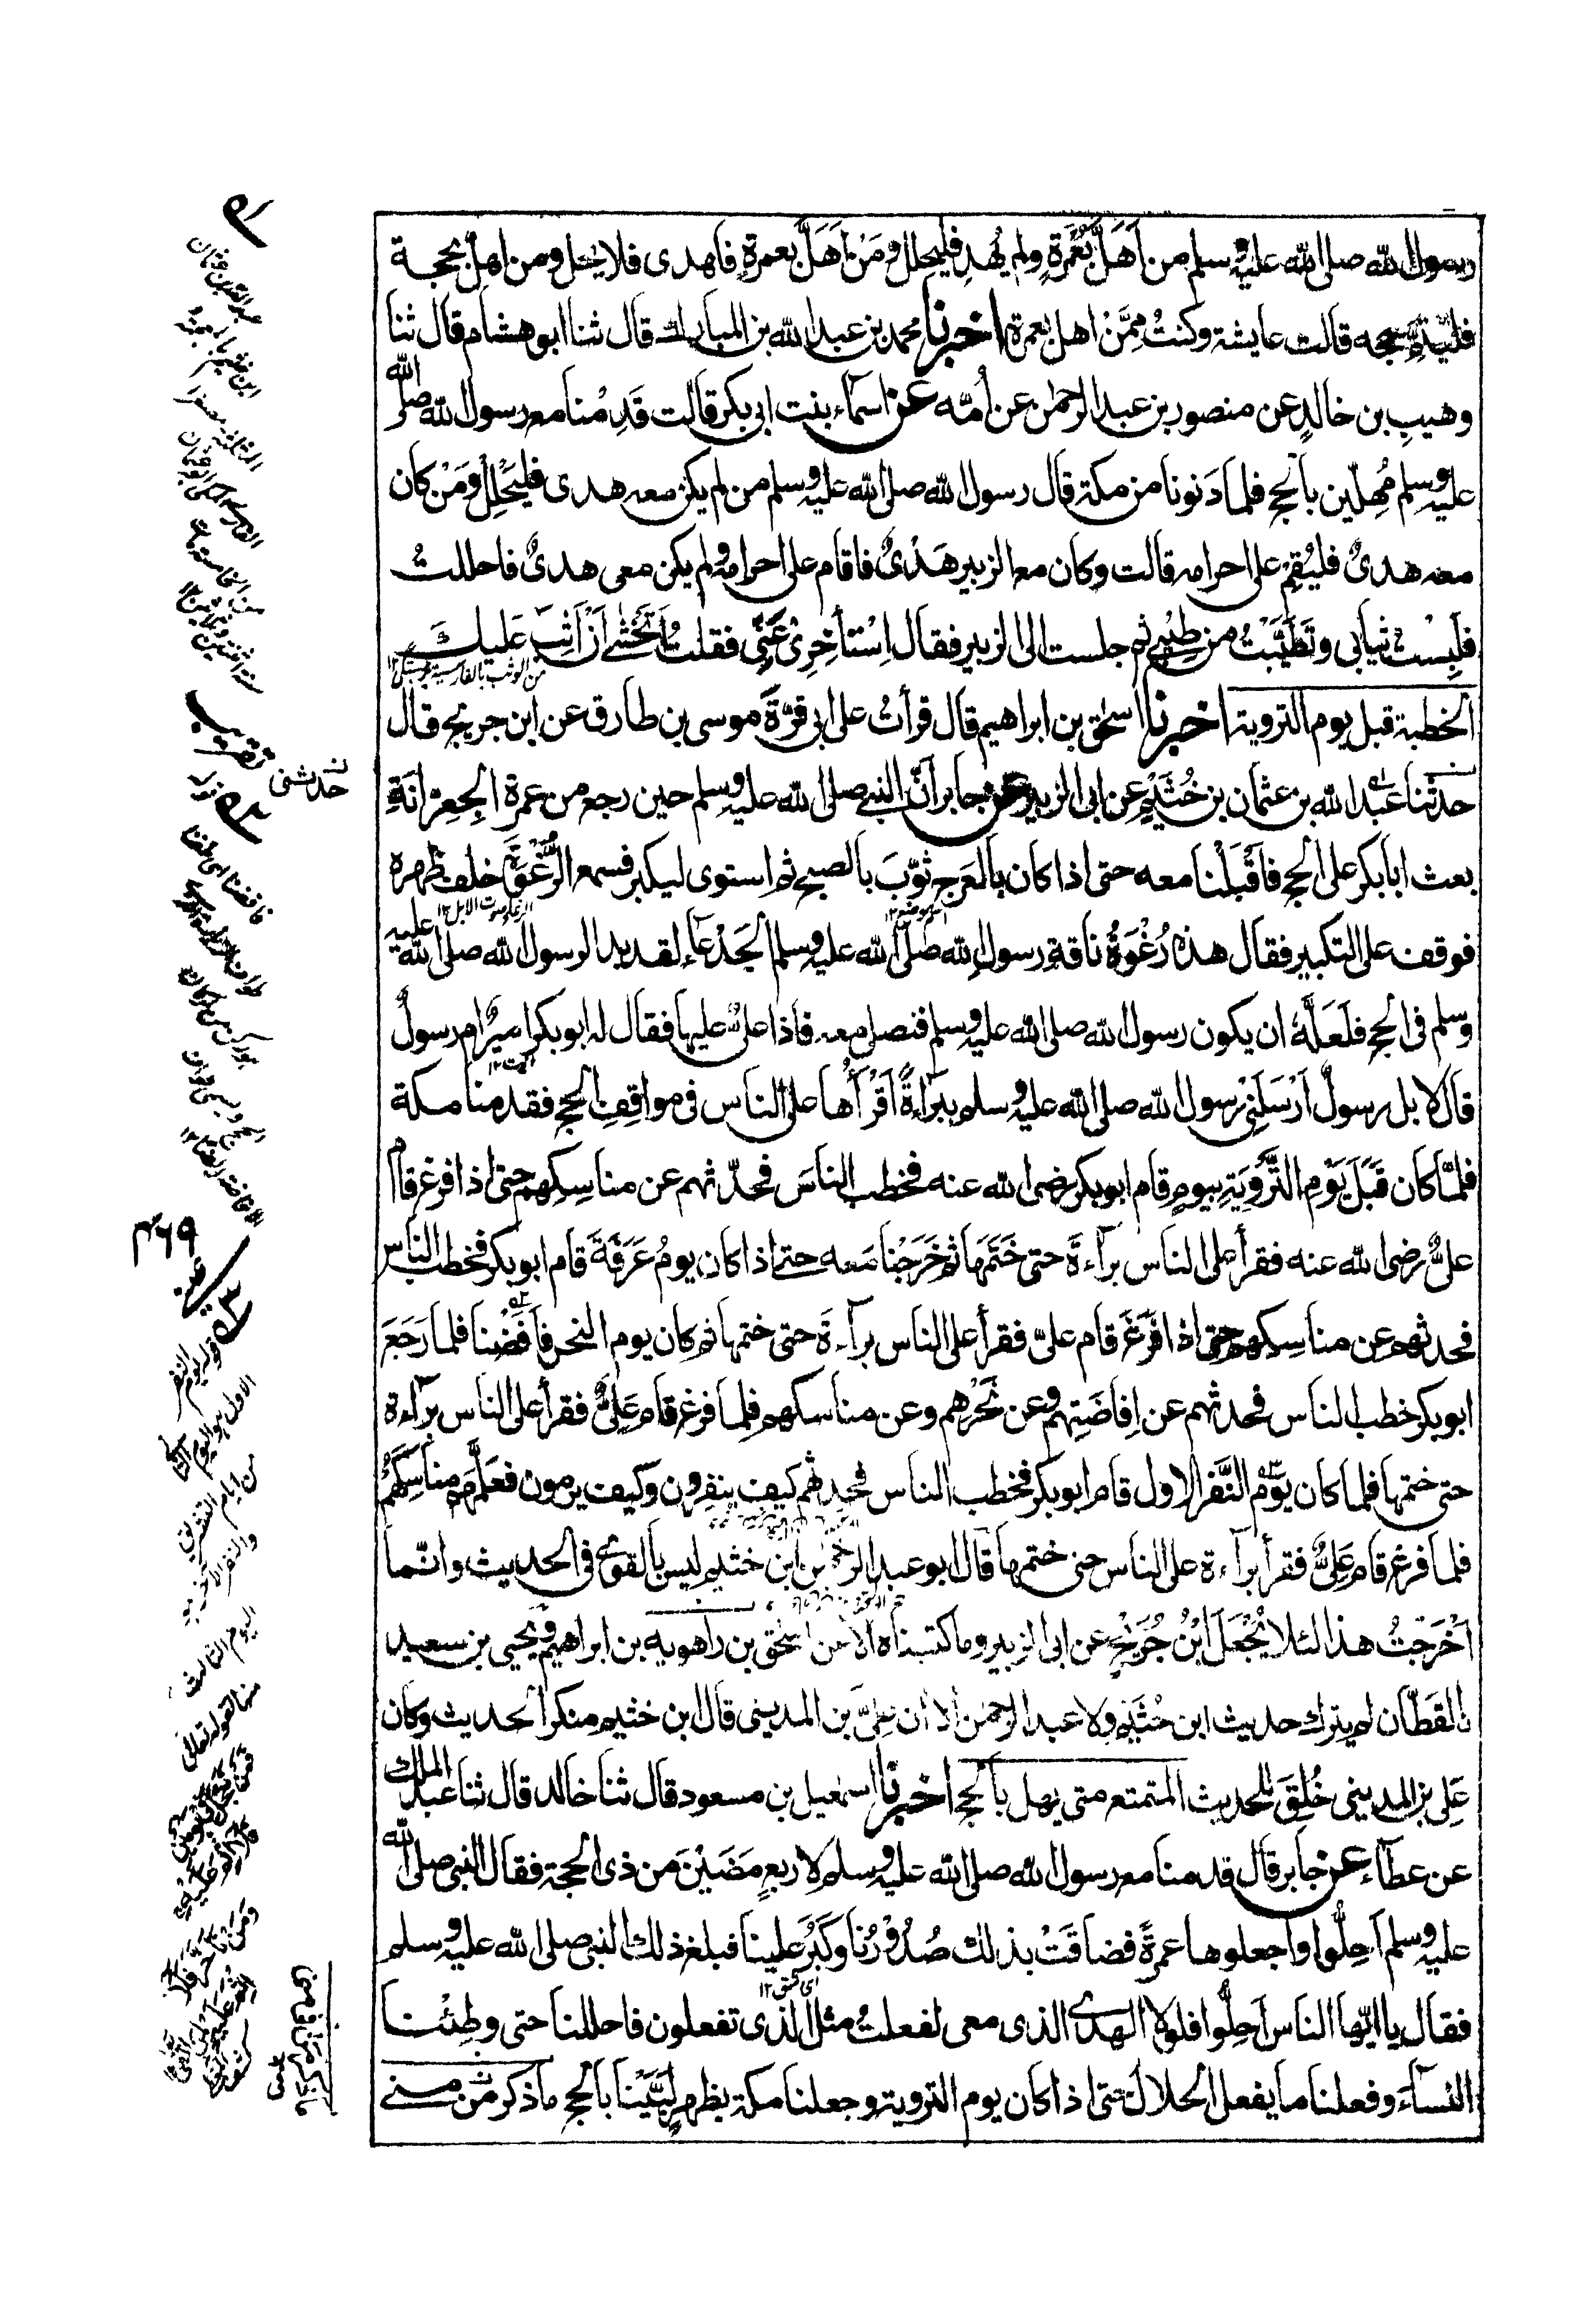 رسول الله صلى الله عليه وسلم من أَهَلَّ بعُمْرَةٍ ولم يُهدِ فليحلل ومَنْ اَهَلَّ بعمرةٍ فاهدى فلا يحل ومن اهلّ بحجة
فليتمّ حجه قالت عايشة وكنتُ مِمَّنْ اهل بعمرة اخبرنا محمد بن عبد الله بن المبارك قال ثنا ابو هشام قال ثنا
وهيب بن خالدٍ عن منصور بن عبد الرحمٰن عن أُمّه عن اسمآء بنت ابى بكر قالت قَدِمْنا مع رسول الله صلى الله
عليه وسلم مُهِلّين بالحج فلما دَنَونا من مكة قال رسول الله صلى الله عليه وسلم من لم يكن معه هدى فليَحْلِل ومَنْ كان
معه هدىٌ فليُقِمْ على احرامه قالت وكان مع الزبير هَدْىٌ فاقام على احرامه ولم يكن معى هدىٌ فاحللتُ
فلَبِسْتُ ثيابى وتَطَيَّبْتُ من طِيْبِى ثم جلست الى الزبير فقال اِسْتأخِرِى عَنِّى فقلت أتخشى اَنْ اَثِبَ عَليكَ
من الوثب بالفارسية برجستن ١٢
الخطبة قبل يوم التروية اخبرنا اسحٰق بن ابراهيم قال قرأت على ابى قرّةَ موسى بن طارق عن ابن جريج قال
حدثنا عبد الله بن عثمان بن خُثَيْمٍ عن ابى الزبير عن جابر أنّ النبى صلى الله عليه وسلم حين رجع من عمرة الجِعِرّانَةِ
بعث ابا بكر على الحج فاَقْبَلْنا معه حتى اذا كان بالعَرج ثوّبَ بالصبح ثم استوى ليكبر فسمع الرُّغْوَةَ خلف ظهره
اسم موضع ١٢
الرغاء صوت الابل ١٢
فوقف على التكبير فقال هذه رُغْوَةُ ناقةِ رسول الله صلى الله عليه وسلم الجَدْعاء لقد بدا لرسول الله صلى الله عليه
وسلم فى الحج فلَعَلَّهُ ان يكون رسول الله صلى الله عليه وسلم فنصلى معه فاذا علىٌّ عليها فقال له ابو بكر اميرٌ ام رسولٌ
قال لا بل رسولٌ أَرْسَلَنِىْ رسول الله صلى الله عليه وسلم ببَرَاءةً اَقْرَأُها على الناس فى مواقِفِ الحج فقدمنا مكة
فلمّا كان قَبْلَ يَوْمِ التَّرْوِيَةِ بيومٍ قام ابو بكر رضى الله عنه فخطب الناسَ فحدّثهم عن مناسِكِهِم حتى اذا فرغ قام
علىٌّ رضى الله عنه فقرأ على الناس برآءةَ حتى خَتَمَهَا ثم خَرَجْنا مَعه حتى اذا كان يومُ عَرَفَةَ قام ابو بكر فخطب الناس
فحدثهم عن مناسِكِهم حتى اذا فَرَغَ قام علىّ فقرأ على الناس برآءةَ حتى ختمها ثم كان يوم النحر فأَفَضْنا فلما رَجَعَ
ابو بكر خطب الناس فحدثهم عن اِفاضَتِهم وعن نَحْرِهم وعن مناسكهم فلما فرغ قام عَلىٌّ فقرأ على الناس برآءة
حتى ختمها فلما كان يَوْمُ النَّفرِ الاول قام ابو بكر فخطب الناس فحدثهم كيف ينفِرون وكيف يرمون فعَلَّمَهم مناسِكَهُمْ
فلما فرغ قام عَلِىٌّ فقرأ برآءة على الناس حتى ختمها قال ابو عبد الرحمٰن ابن خثيم ليس بالقوى فى الحديث وانّما
اَخْرَجْتُ هذا لئلا يُجْعَلَ ابنُ جُرَيْجٍ عن ابى الزبير وما كتبناه الا عن اسحٰق بن راهويه بن ابراهيم ويحيى بن سعيد
القَطّان لم يترك حديث ابن خُثَيْمٍ ولا عبد الرحمٰن الا أن علىّ بن المدينى قال ابن خثيم منكر الحديث وكان
عَلِى بن المدينى خُلِقَ للحديث المتمتع متى يهل بالحج اخبرنا اسمٰعيل بن مسعود قال ثنا خالد قال ثنا عبد الملك
عن عطآء عن جابر قال قدمنا مع رسول الله صلى الله عليه وسلم لاربعٍ مَضَيْنَ من ذى الحجة فقال النبى صلى الله
عليه وسلم اَحِلُّوا واجعلوها عمرةً فضاقَتْ بذلك صُدُوْرُنا وكَبُرَ علينا فبلغ ذلك النبى صلى الله عليه وسلم
اى شق ١٢
فقال يا ايّها الناس اَحِلُّوا فلولا الهدى الذى معى لفعلتُ مثل الذى تفعلون فاحللنا حتى وطِئْنا
النسآءَ وفعلنا ما يفعل الحلالُ حتى اذا كان يوم التروية وجعلنا مكة بظهرٍ لبَّيْنا بالحج ما ذكر من منى
حدثنى
تقريب
٤٦٩
قوله يوم النفر
الاول هو اليوم الثانى
من ايام التشريق
والنفر الآخر
اليوم الثالث
منها لقوله تعالى